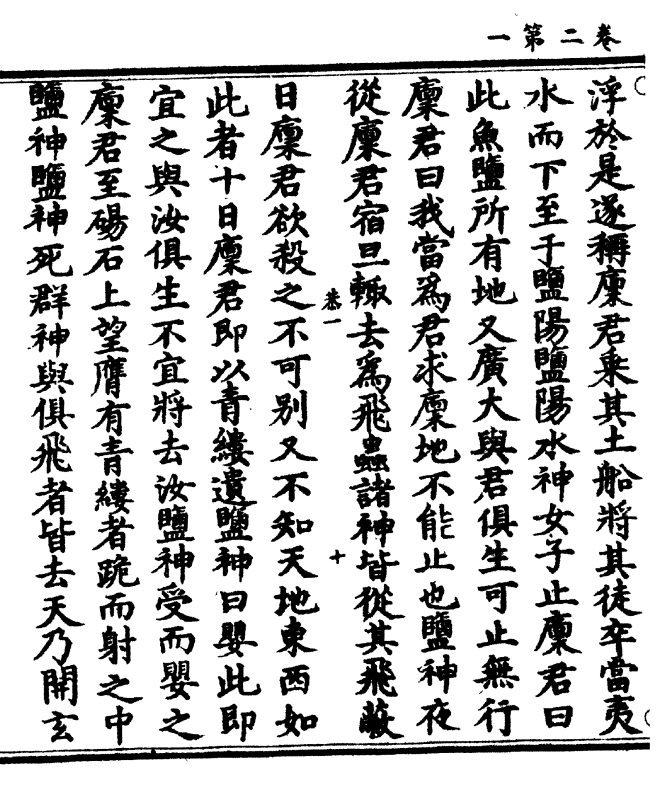 卷二第一
浮於是遂稱廩君乘其土船將其徒卒當夷
水而下至于鹽陽鹽陽水神女子止廩君曰
此魚鹽所有地又廣大與君俱生可止無行
廩君曰我當為君求廩地不能止也鹽神夜
從廩君宿旦輙去為飛蟲諸神皆從其飛蔽
卷一
十
日廩君欲殺之不可別又不知天地東西如
此者十日廩君即以青縷遺鹽神曰嬰此即
宜之與汝俱生不宜將去汝鹽神受而嬰之
廩君至碭石上望膺有青縷者跪而射之中
鹽神鹽神死群神與俱飛者皆去天乃開玄